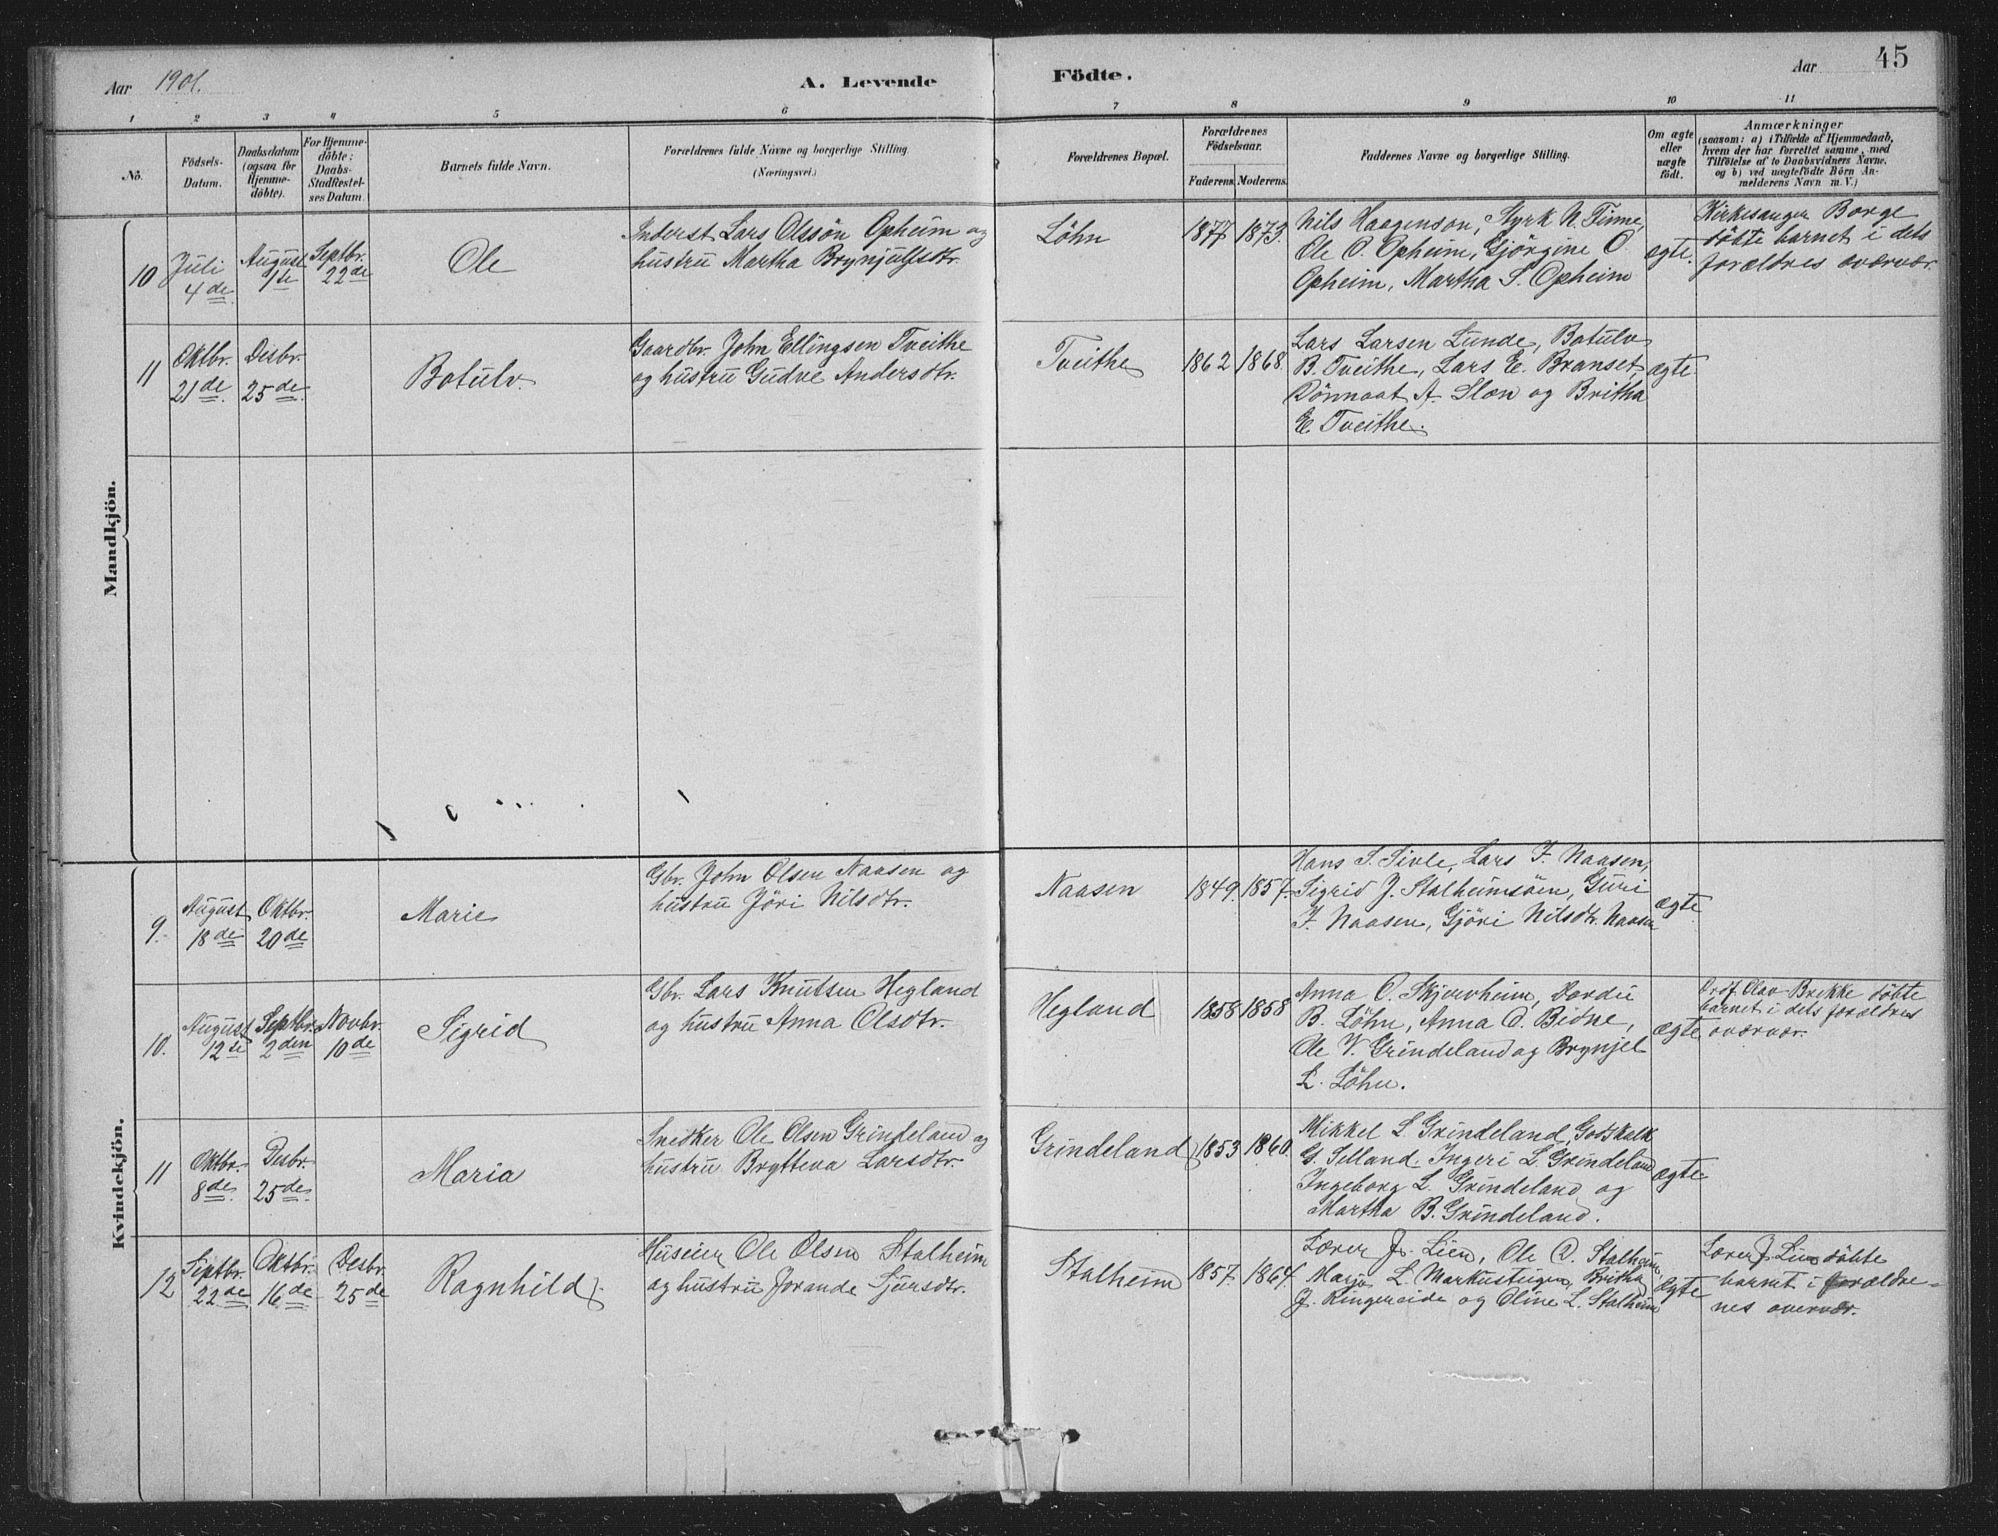 Aar 1901.
A. Levende Födte.
Aar
45
1 2 3 4 5 6 7 8 9 10 11
No.
Födsels-
Datum.
Daabsdatum
(ogsaa for
Hjemme-
döbte).
For Hjemme-
döbte:
Daabs-
Stadfæstel-
ses Datum.
Barnets fulde Navn.
Forældrenes fulde Navne og borgerlige Stilling
(Næringsvei.)
Forældrenes Bopæl.
Forældrenes
Födselsaar.
Faderens. Moderens.
Faddernes Navne og borgerlige Stilling.
Om ægte
eller
uægte
födt.
Anmærkninger
(saasom: a) i Tilfælde af Hjemmedaab,
hvem der har forrettet samme, med
Tilföielse af to Daabsvidners Navne,
og b) ved uægtefödte Börn An-
melderens Navn m. V.)
Mandkjön.
10
Juli
4de
August
1ste
Septbr.
22de
Ole
Inderst Lars Olsson Opheim og
hustru Martha Brynjulfsdtr.
Löhn
1877 1873.
Nils Haagenson, Styrk N. Tinne,
Ole O. Opheim, Gjörgine O.
Opheim, Martha S. Opheim
ægte.
Kirkesanger Borge
döbte barnet i dets
forældres overvær.
11
Oktbr.
21de
Desbr.
25de
Botulv
Gaardbr. John Ellingsen Tveithe
og hustru Gudve Andersdtr.
Tveithe
1862 1868.
Lars Larsen Lunde, Botulv
B. Tveithe, Lars E. Branset,
A. Slæn og Britha
E. Tveithe.
ægte.
Kvindekjön.
9.
August
18de
Oktbr.
20de
Marie
Gbr. John Olsen Naasen og
hustru Jöri Nilsdtr.
Naasen
1849. 1857.
Hans S. Sivle, Lars J. Naasen,
Sigrid J. Stalheimsöen, Guri
J. Naasen, Gjöri Nilsdtr. Naasen
ægte.
10.
August
12te
Septbr.
2den
Novbr.
10de
Sigrid
Gbr. Lars Knutsen Hegland
og hustru Anna Olsdtr.
Hegland
1858 1858
Anna O. Skjervheim, Dordei
B. Löhn, Anna O. Bidne,
Ole V. Grindeland og Brynjel
L. Löhn.
ægte
Olav Brekke döbte
barnet i dets forældres
overvær.
11
Oktbr.
8de
Desbr.
25de
Maria
Snidker Ole Olsen Grindeland og
hustru Brytteva Larsdtr.
Grindeland
1853 1860.
Mikkel L Grindeland, Godskalk
G. Selland. Ingeri L. Grindeland
Ingeborg L. Grindeland og
Martha B. Grindeland.
ægte.
12
Septbr.
22de
Oktbr.
16de
Desbr.
25de
Ragnhild
Huseier Ole Olsen Stalheim
og hustru Jorande Sjursdtr.
Stalheim
1857. 1864.
Lærer J. Lien, Ole O. Stalheim,
L. Markusteigen, Britha
J. Ringereide og Oline L. Stalheim
ægte
Lærer J. Lien döbte
barnet i forældre-
nes overvær.